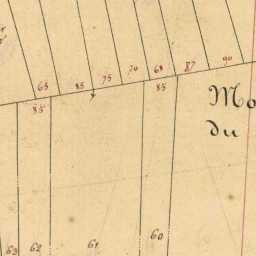 65 85 75 70 68 87 90
85 85
Mo
du
63 62 61 60